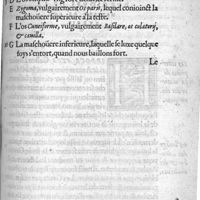 E Zygoma, vulgairement os paris, lequel conioinct la
maschouere superieure à la teste.
F L'os Cuneiforme, vulgairement Basilare, os colatorij,
& cauilla.
G La maschouere inferieure, laquelle se luxe quelque
foys & rort, quand nous baillons fort.
Le